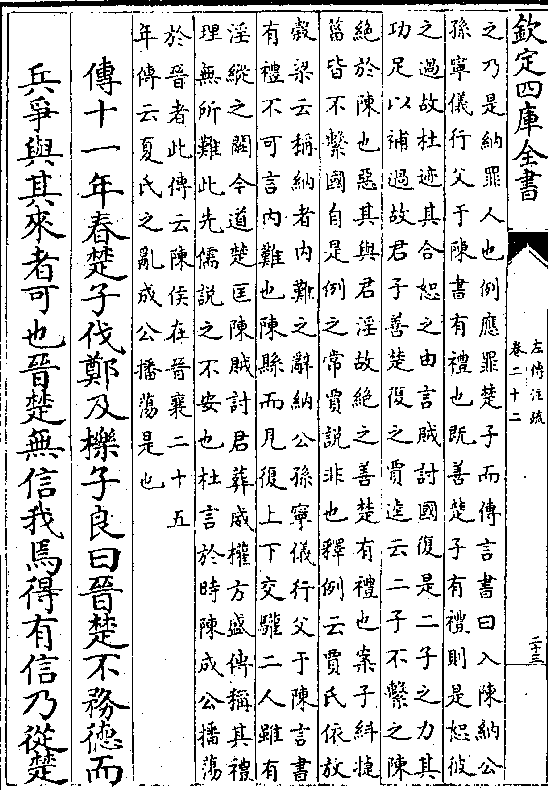 欽定四庫全書
左傳注疏
卷二十二
二十三
之乃是納罪人也例應罪楚子而傳言書曰入陳納公
孫寧儀行父于陳書有禮也既善楚子有禮則是恕彼
之過故杜迹其合恕之由言賊討國復是二子之力其
功足以補過故君子善楚復之賈逵云二子不繫之陳
絕於陳也惡其與君淫故絕之善楚有禮也案子糾捷
菑皆不繫國自是例之常賈說非也釋例云賈氏依放
穀梁云稱納者内難之辭納公孫寧儀行父于陳言書
有禮不可言内難也陳縣而見復上下交驩二人雖有
淫縱之闕今道楚匡陳賊討君葬威權方盛傳稱其禮
理無所難此先儒說之不安也杜言於時陳成公播蕩
於晉者此傳云陳侯在晉襄二十五
年傳云夏氏之亂成公播蕩是也
傳十一年春楚子伐鄭及櫟子良曰晉楚不務德而
兵爭與其來者可也晉楚無信我焉得有信乃從楚